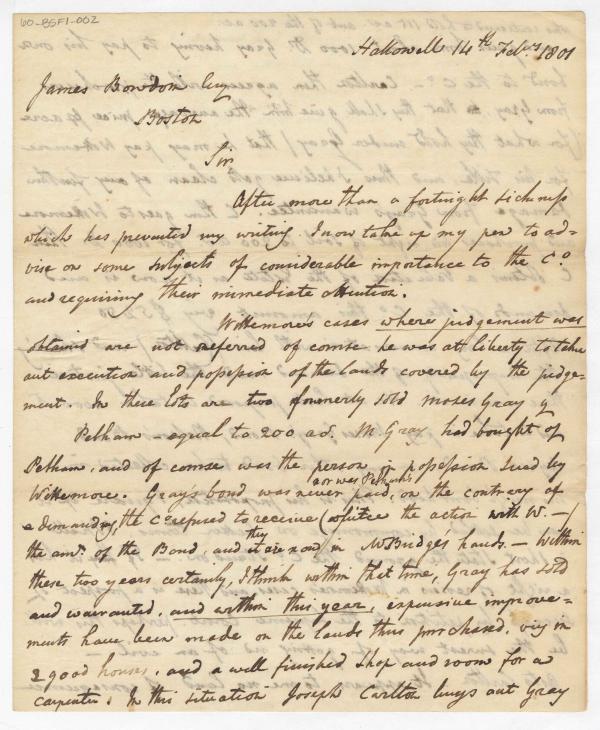 60-BSF1-002
Hallowell 14th Feby 1801
James Bowdoin Esq
Boston
Sir
After more than a fortnight sickness
which has prevented my writing I now take up my pen to ad=
vise on some subjects of considerable importance to the Co
and requiring their immediate attention.
Wittemore's cases where judgement was
obtained are not referred of course he was at liberty to take
out execution and possession of the lands covered by the judge-
ment. In these lots are two formerly sold Moses Gray &
Pelham - equal to 200 acs. M Gray had bought of
Pelham, and of course was the person in possession sued by
Wittemore. Gray's bond was never paid, on the contrary of
nor was Pelham's
a demanding, the Co refused to receive (whilce the action with W. -)
the amt. of the Bond, and they are now in Mr Bridges hands. - Within
these two years certainly, I think within that time, Gray has sold
and warranted, and within this year, expensive improve=
ments have been made on the lands thus purchased, viz in
2 good houses, and a well finished shop and room for a
carpenter. In this situation Joseph Carlton buys out Gray